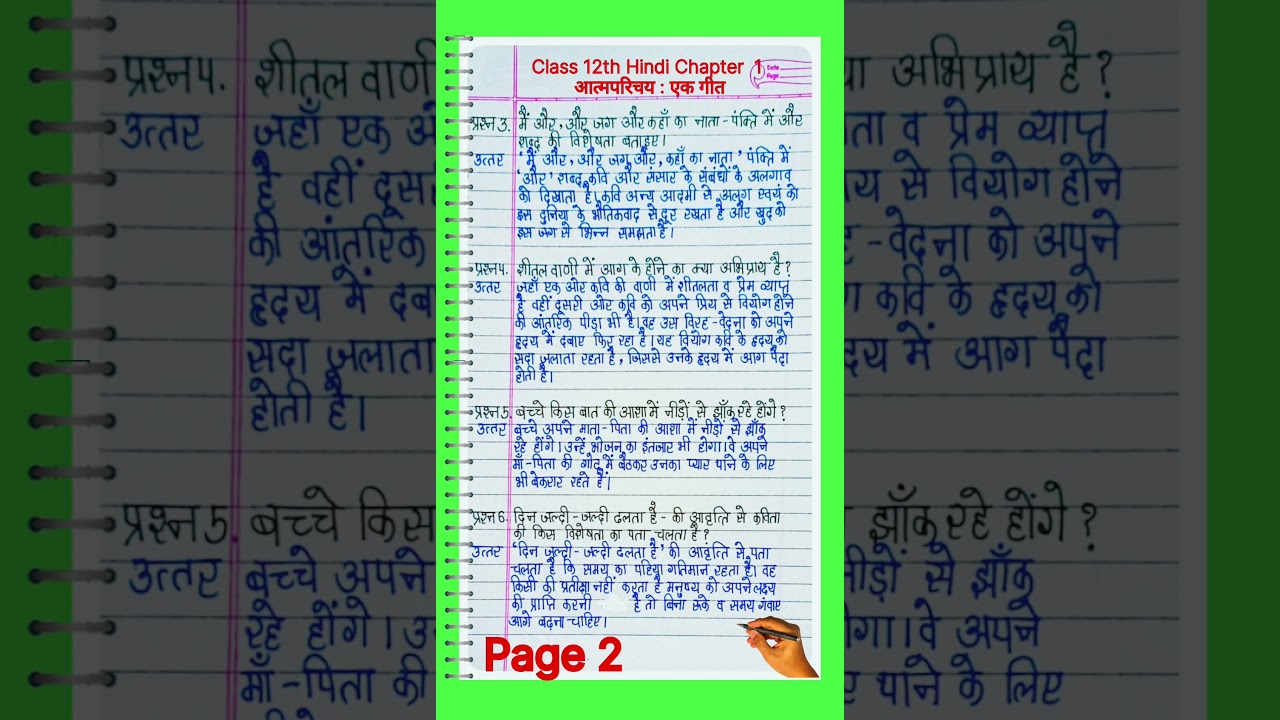 Class 12th Hindi Chapter 1
आत्मपरिचय : एक गीत
Date
Page
प्रश्न 3. मैं और, और जग और कहाँ का नाता - पंक्ति में और
शब्द की विशेषता बताइए।
उत्तर 'मैं और, और जग और, कहाँ का नाता' पंक्ति में
'और' शब्द कवि और संसार के संबंधों के अलगाव
को दिखाता है। कवि अन्य आदमी से अलग स्वयं को
इस दुनिया के भौतिकवाद से दूर रखता है और खुद को
इस जग से भिन्न समझता है।
प्रश्न 4. शीतल वाणी में आग के होने का क्या अभिप्राय है?
उत्तर जहाँ एक और कवि की वाणी में शीतलता व प्रेम व्याप्त
है वहीं दूसरी और कवि को अपने प्रिय से वियोग होने
की आंतरिक पीड़ा भी है। वह उस विरह - वेदना को अपने
हृदय में दबाए फिर रहा है। यह वियोग कवि के हृदय को
सदा जलाता रहता है, जिससे उनके हृदय में आग पैदा
होती है।
प्रश्न 5. बच्चे किस बात की आशा में नीड़ों से झाँक रहे होंगे?
उत्तर बच्चे अपने माता - पिता की आशा में नीड़ों से झाँक
रहे होंगे। उन्हें भोजन का इंतजार भी होगा। वे अपने
माँ - पिता की गोद में बैठकर उनका प्यार पाने के लिए
भी बेकरार रहते हैं।
प्रश्न 6. दिन जल्दी - जल्दी ढलता है - की आवृत्ति से कविता
की किस विशेषता का पता चलता है?
उत्तर 'दिन जल्दी - जल्दी ढलता है' की आवृत्ति से पता
चलता है कि समय का पहिया गतिमान रहता है। वह
किसी की प्रतीक्षा नहीं करता है मनुष्य को अपने लक्ष्य
की प्राप्ति करनी है तो बिना रूके व समय गँवाए
आगे बढ़ना चाहिए।
Page 2